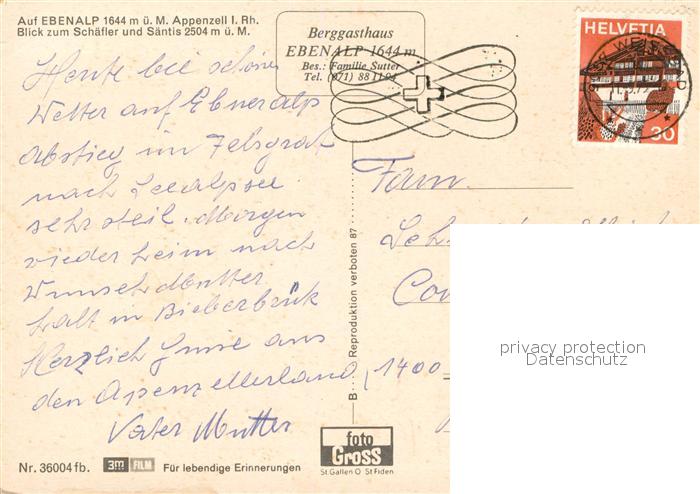 Auf EBENALP 1644 m ü. M. Appenzell I. Rh.
Blick zum Schäfler und Säntis 2504 m ü. M.
Berggasthaus
EBENALP 1644 m
Bes.: Familie Sutter
Tel. (071) 88 11 94
HELVETIA
30
Heute bei schönem
Wetter auf Ebneralp
Abstieg im Felsgrat
nach Seealpsee
sehr steil. Morgen
wieder heim nach
Wunsch Mutter
halt in Bieberbrük
Herzlich Grüsse aus
den Apenzellerland
Vater Mutter
Fam.
1400
B Reproduktion verboten 87
foto
Gross
St. Gallen O St. Fiden
Nr. 36004 fb.
3m FILM
Für lebendige Erinnerungen
privacy protection
Datenschutz